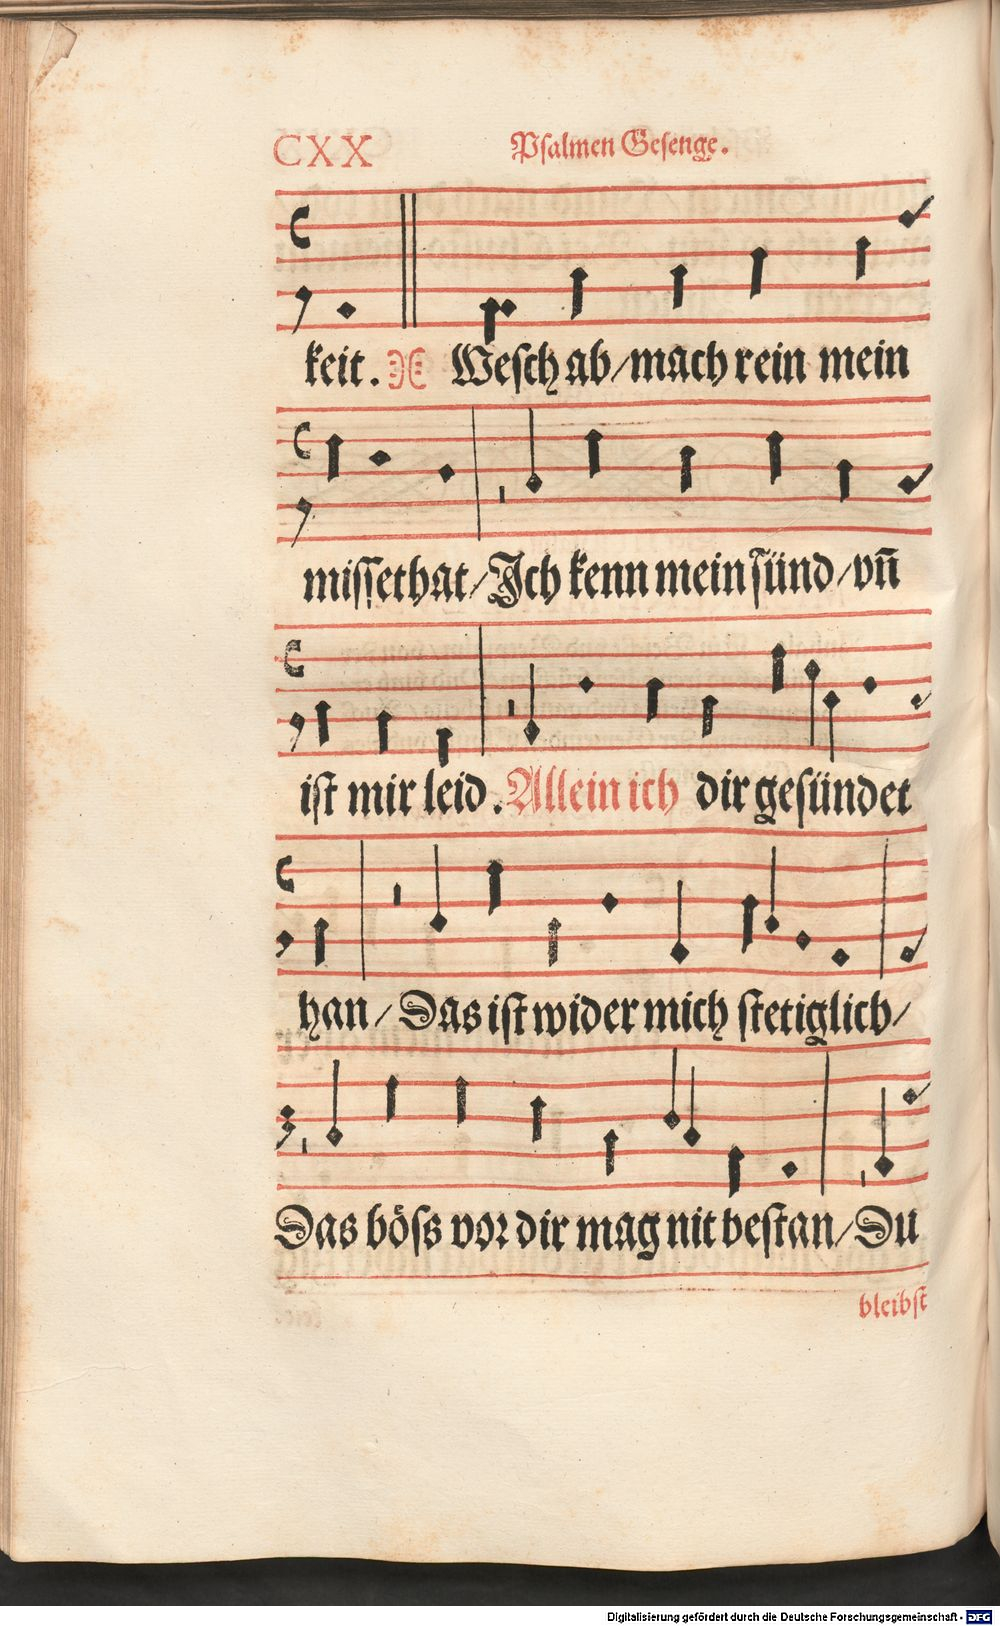 CXX
Psalmen Gesenge.
keit. Wesch ab/mach rein mein
missethat/Ich kenn mein sünd/vñ
ist mir leid. Allein ich dir gesündet
han/Das ist wider mich stetiglich/
Das böss vor dir mag nit bestan/Du
bleibst
Digitalisierung gefördert durch die Deutsche Forschungsgemeinschaft - DFG